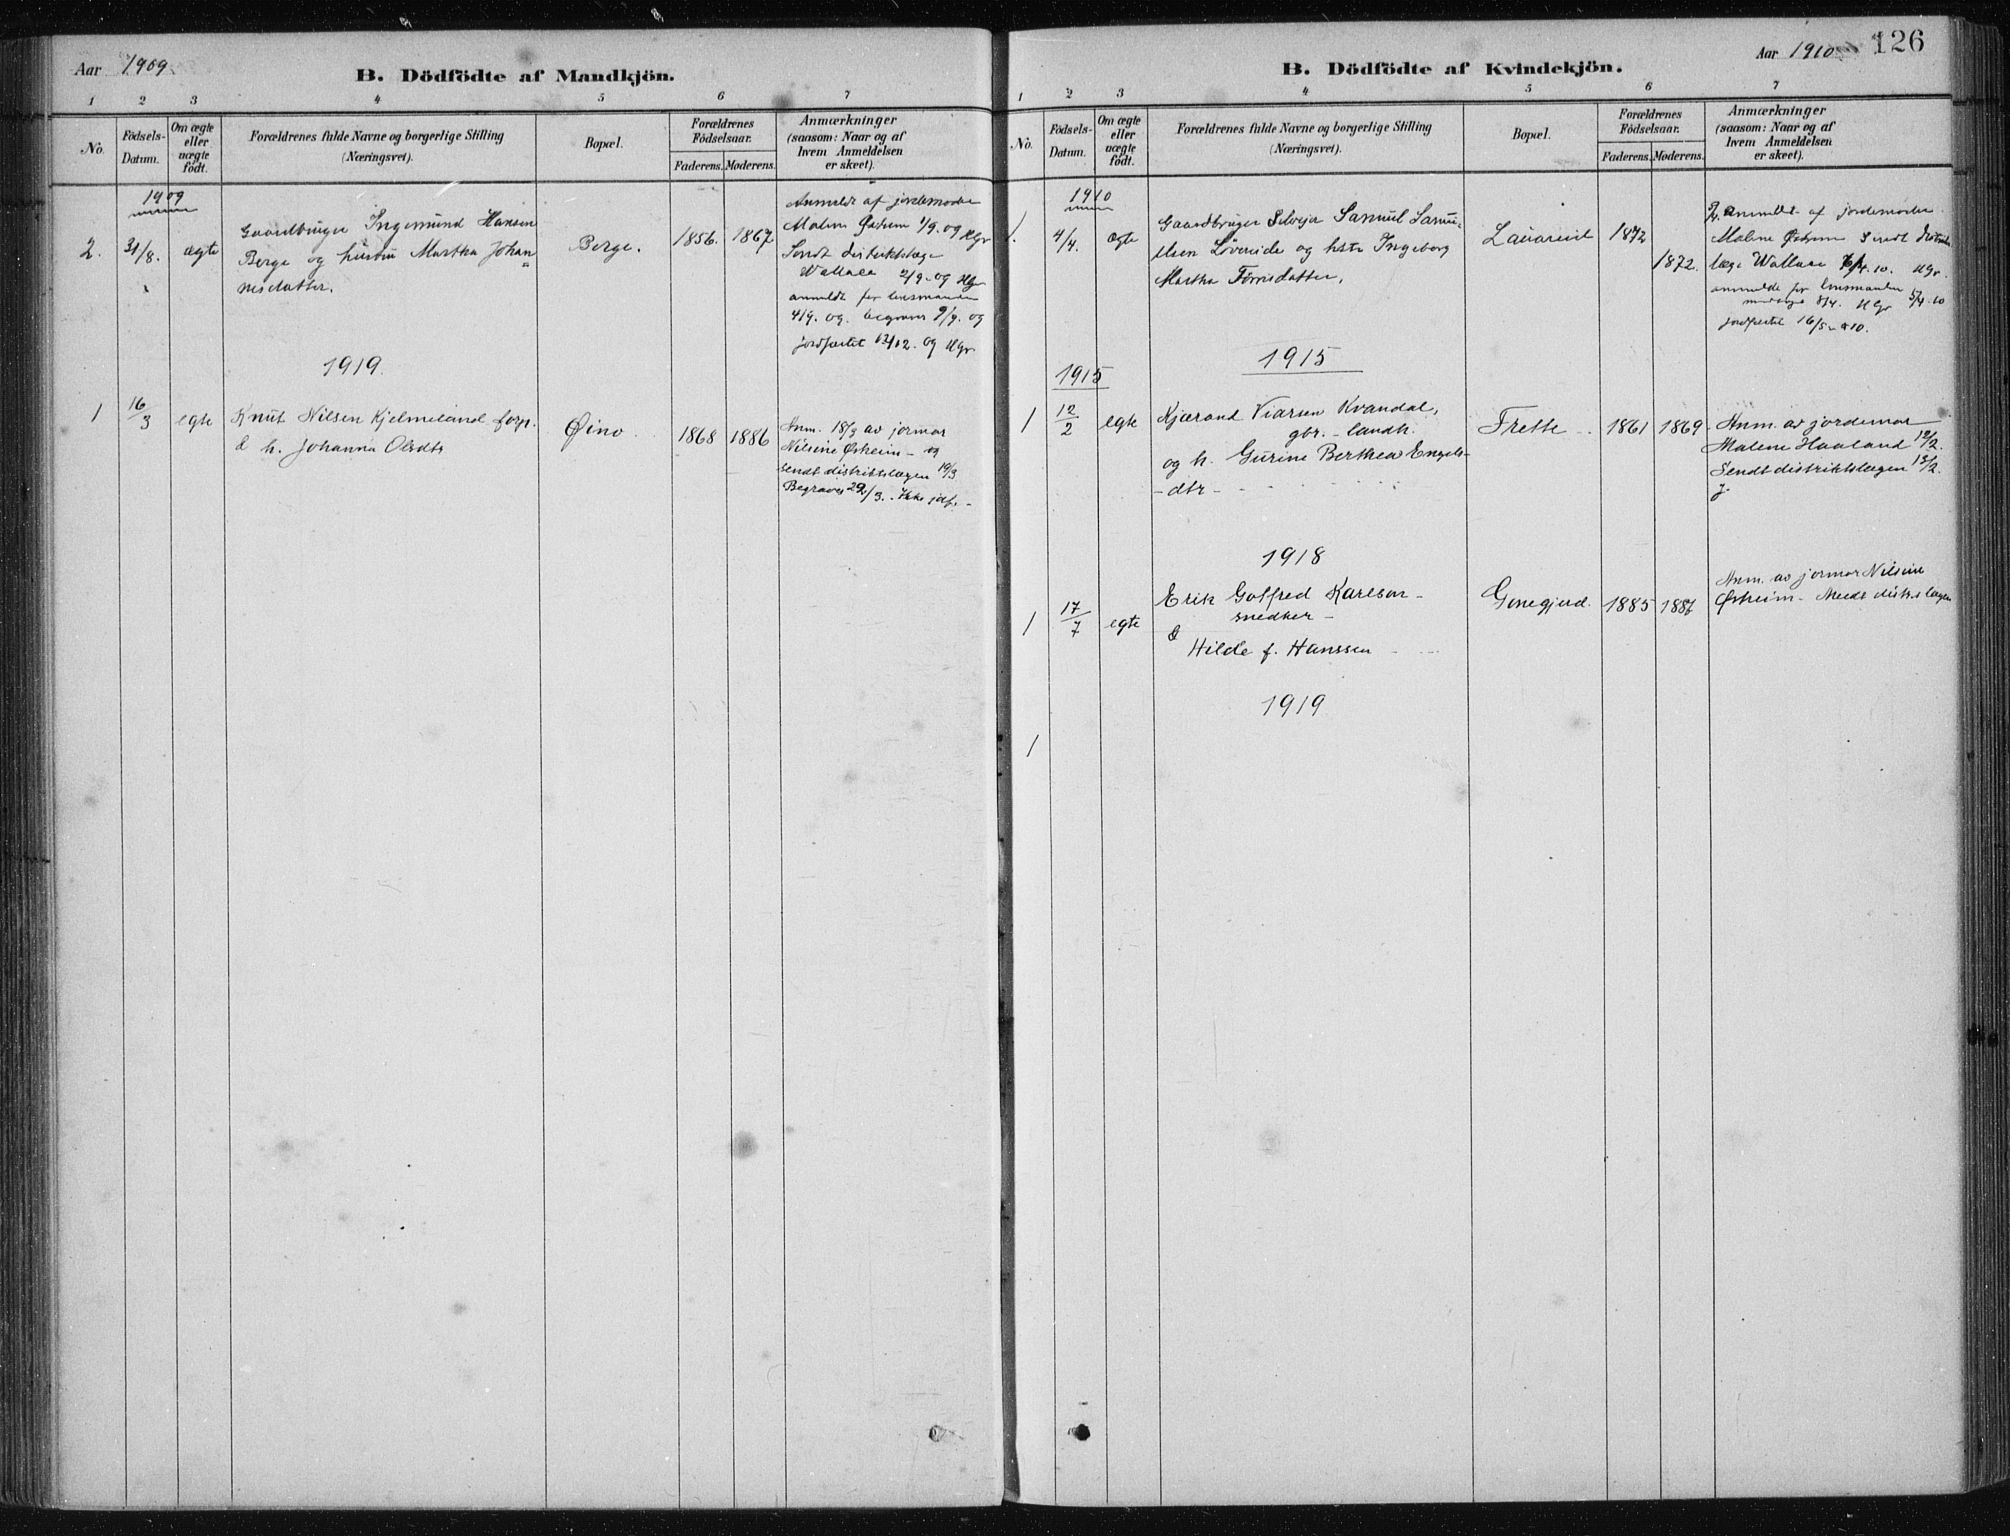 Aar 1909.
B. Dödfödte af Mandkjön.
1 2 3 4 5 6 7
No.
Födsels-
Datum.
Om ægte
eller
uægte
födt.
Forældrenes fulde Navne og borgerlige Stilling
(Næringsvei).
Bopæl.
Forældrenes
Födselsaar.
Faderens. Moderens.
Anmærkninger
(saasom: Naar og af
hvem Anmeldelsen
er skeet).
1909
2. 31/8. ægte
Gaardbruger Ingemund Hansen
Berge og hustru Martha Johan=
nesdatter.
Berge.
1856. 1867
Anmeldt af jordemoder
Malene Østrem 1/9. 09
Sendt distriktslæge
Wallace 2/9. 09
anmeldt for lensmanden
4/9. 09. begravet 9/9. 09
jordfæstet 12/12. 09
1919.
1 16/3 egte
Knut Nilsen Kjelmeland forp.
& h. Johanna Olsdtr
Øino
1868 1886
Anm. 18/3 av jormor
Nilsine Østreim - og
sendt distriktslægen 19/3
Begravet 22/3. Ikke jdf. -
Aar 1910
126
B. Dödfödte af Kvindekjön.
1 2 3 4 5 6 7
No.
Födsels-
Datum.
Om ægte
eller
uægte
födt.
Forældrenes fulde Navne og borgerlige Stilling
(Næringsvei).
Bopæl.
Forældrenes
Födselsaar.
Faderens. Moderens.
Anmærkninger
(saasom: Naar og af
hvem Anmeldelsen
er skeet).
1910
1. 4/4. ægte
Gaardbruger Selveier Samuel Samu=
elsen Løvereide og hstr Ingeborg
Martha Tørrisdatter,
Lauareid
1872
1872.
anmeldt af jordemoder
Malene Østrem Sendt distrikts
læge Wallace
anmeldt for lensmanden
8/4. 5/4.10
jordfæstet 16/5-10.
1915
1915
1 12/2 egte
Kjærand Viarsen Kvandal,
gbr. - landh.
og h. Gurine Berthea Engels-
- dtr -
Trette
1861 1869
Anm. av jordemor
Malene Haaland 12/2.
Sendt distriktslægen 13/2.
1918
1 17/7 egte
Erik Gotfred Karlson -
snedker -
& Hilde f. Hanssen
Gonegjerd.
1885 1887
Anm. av jormor Nilsine
Østreim - Meldt distr.lægen
1919
1